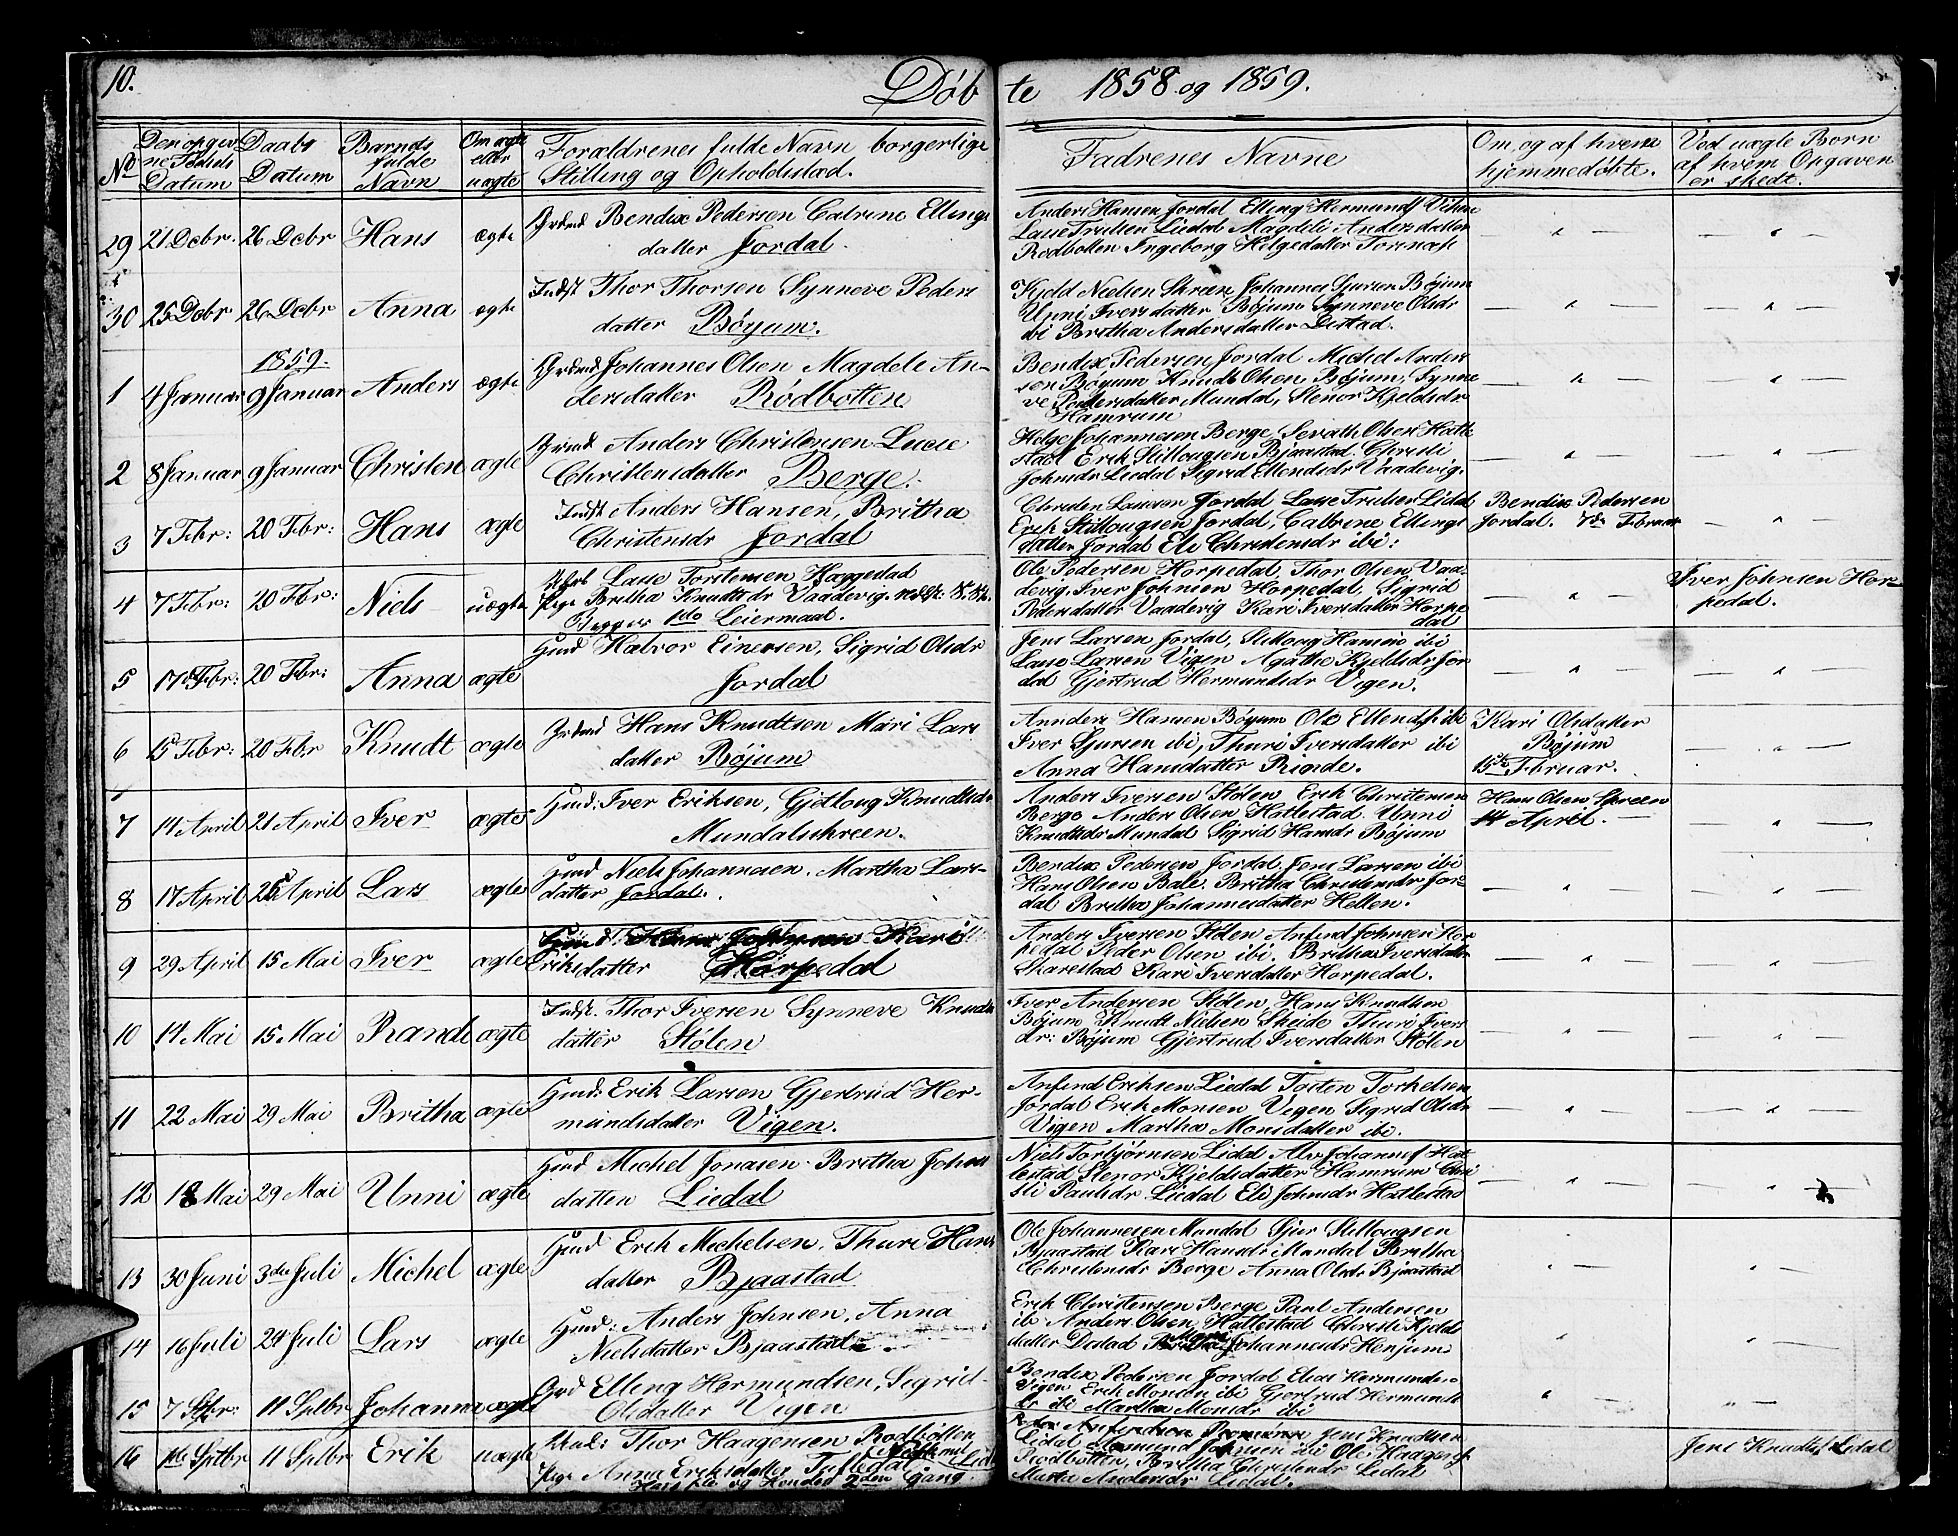 10.
Døbte 1858 og 1859.
No
Den opgivne Fødsels Datum
Daabs Datum
Barnets fulde Navn
Om ægte eller uægte
Forældrenes fulde Navn borgerlige Stilling og Opholdssted
Fadrenes Navne
Om, og af hvem hjemmedøbte.
Ved uægte Børn af hvem Opgaven er skedt.
29 21 Debr. 26 Debr Hans ægte
Bendix Pedersen Catrine Ellings
datter Jordal.
Anders Hansen Jordal Elling Hermunds Vigen
Lasse Trulsen Liedal Magdeli Andersdatter
Rødbotten Ingeborg Helgedatter
30 25 Debr 26 Debr Anna ægte
Indst Thor Thorsen Synneve Peders
datter Bøyum.
Kjeld Nielsen Skreen Johannes Sjursen Bøjum
Unni Iversdatter Bøjum Synneve Olsdr
ibi Britha Andersdatter Distad.
1859.
1 4 Januar 9 Januar Anders ægte
Johannes Olsen Magdele An-
dersdatter Rødbotten
Bendix Pedersen Jordal Michel Anders
sen Bøyum Knudt Olsen Bøjum, Synne
ve Pedersdatter Mundal, Stenor Kjeldsdr
Hamrum
2 8 Januar 9 Januar Christen ægte
Anders Christensen Lucie
Christensdatter Berge.
Helge Johannesen Berge, Sevath Olsen Hatle
stad Erik Stillougsen Bjaastad Christi
Johnsdr Liedal Sigrid Ellendsdr Vaadevig.
3 7 Febr: 20 Febr: Hans ægte
Indst Anders Hansen, Britha
Christensdr Jordal
Christen Larsen Jordal Lasse Trulsen Lidal
Erik Stillougsen Jordal, Cathrine Ellings
datter Jordal Eli Christensdr ibi:
Bendix Pedersen
Jordal. 7de Februar
4 7 Febr: 20 Febr: Niels uægte
Lasse Torstensen Hæggestad
Pige Britha Knudtsdr Vaadevig.
Begges 1ste Leiermaal.
Ole Pedersen Horpedal, Thor Olsen Vaa-
devig. Iver Johnsen Horpedal, Sigrid
Pedersdatter Vaadevig Kari Iversdatter Horpe
dal
Iver Johnsen Hor-
pedal.
5 17 Febr: 20 Febr: Anna ægte
Huusmd Halvor Einersen, Sigrid Olsdr
Jordal
Jens Larsen Jordal, Stilloug Hansen ibi
Lasse Larsen Vigen Agathe Kjeldsdr Jor
dal Gjertrud Hermundsdr Vigen.
6 15 Febr: 20 Febr Knudt ægte
Hans Knudtsen Mari Lars
datter Bøjum
Annders Hansen Bøyum Ole Ellends ibi
Iver Sjursen ibi, Thuri Iversdatter ibi
Anna Hansdatter Rinde.
Kari Olsdatter
Bøjum
15de Februar.
7 14 April 21 April Iver ægte
Huusmd: Iver Eriksen, Gjetloug Knudtsdr
Mundalsskreen.
Anders Iversen Stølen Erik Christensen
Berge Anders Olsen Hatlestad Unni
Knudtsdr Mundal Sigrid Hansdr Bøjum
Hans Olsen Skreen
14 April.
8 17 April 25 April Lars ægte
Niels Johannesen. Martha Lars-
datter Jordal.
Bendix Pedersen Jordal, Jens Larsen ibi
Hans Olsen Bale. Britha Christensdr Jor
dal Britha Johannesdatter Hellen.
9 29 April 15 Mai Iver ægte
Johnsen Kari
Eriksdatter Horpedal
Anders Iversen Stølen Anfind Johnsen Hor
pedal Peder Olsen ibi. Britha Iversdatter
Skarestad Kari Iversdatter Horpedal.
10 14 Mai 15 Mai Randi ægte
Indst. Thor Iversen Synneve Knudts
datter Stølen
Iver Andersen Stølen, Hans Knudtsen
Bøjum Knudt Nielsen Skeide Thuri Ivers
dr: Bøjum Gjertrud Iversdatter Stølen
11 22 Mai 29 Mai Britha ægte
Erik Larsen Gjertrud Her-
mundsdatter Vigen.
Anfind Eriksen Liedal Tosten Torkelsen
Jordal Erik Monsen Vigen Sigrid Olsdr
Vigen Martha Monsdatter ibi.
12 18 Mai 29 Mai Unni ægte
Michel Jonasen. Britha Johns
datter Liedal
Niels Torbjørnsen Lidal Alv Johannes Hat
lestad Stenor Kjeldsdatter Hamrum Chri
sti Paulsdr Liedal Eli Johnsdr Hatlestad
13 30 Juni 3die Juli Michel ægte
Erik Michelsen. Thuri Hans
datter Bjaastad
Ole Johannesen Mundal Sjur Stillougsen
Bjaastad Kari Hansdr Mundal Britha
Christensdr Berge Anna Olsdr Bjaastad
14 16 Juli 24 Juli Lars ægte
Anders Johnsen, Anna
Nielsdatter Bjaastad
Erik Christensen Berge Paul Andersen
ibi Anders Olsen, Hatlestad Christi Kjelds
datter Distad Johannesdr Henjum
15 7 Sptbr: 11 Sptbr Johanna ægte
Elling Hermundsen, Sigrid
Olsdatter Vigen
Bendix Pedersen Jordal Elias Hermunds.
Vigen Erik Monsen ibi Gjertrud Hermunds
dr ibi Martha Monsdr ibi
16 Sptbr 11 Sptbr Erik uægte
Thor Haagensen Rødbotten
Pige Anna Eriksdatter
2den Gang.
Jens Knudtsen
Lidal Johnsen ibi Ole Haagens
Rødbotten, Britha Christensdr Lidal
Martha Andersdr Lidal.
Jens Knudts Lidal